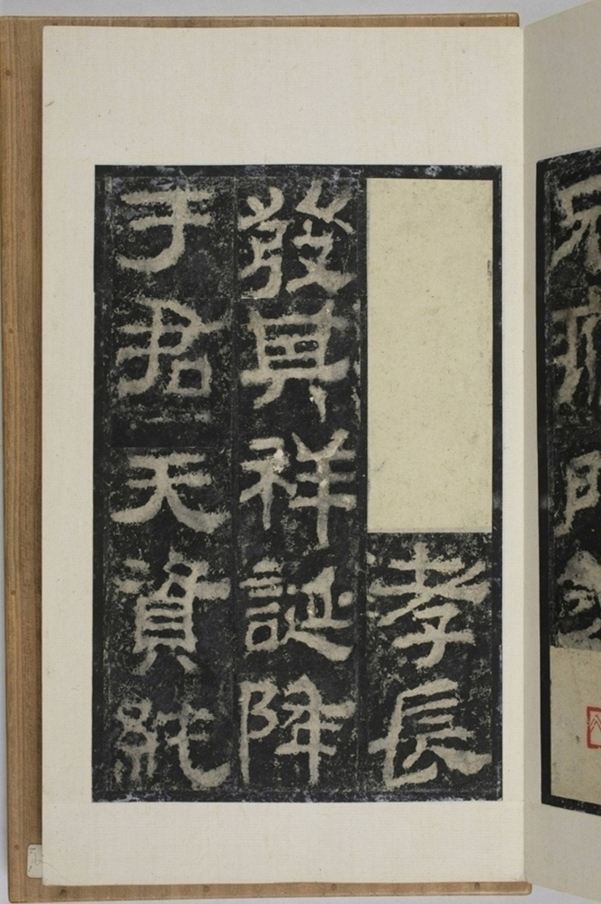 孝長
發其祥誕降
于君〻天資純